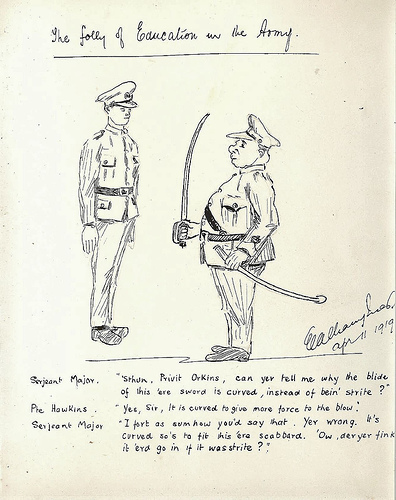 The folly of Education in the Army.
apr 11 1919
Serjeant Major. "'Sthun, Privit Orkins, can yer tell me why the blide
of this 'ere sword is curved, instead of bein' strite?"
Pte Hawkins. "Yes, Sir, It is curved to give more force to the blow."
Serjeant Major "I fort as sumhow you'd say that. Yer wrong. It's
curved so's to fit this 'ere scabbard. 'Ow, der yer fink
it 'erd go in if it was strite?"